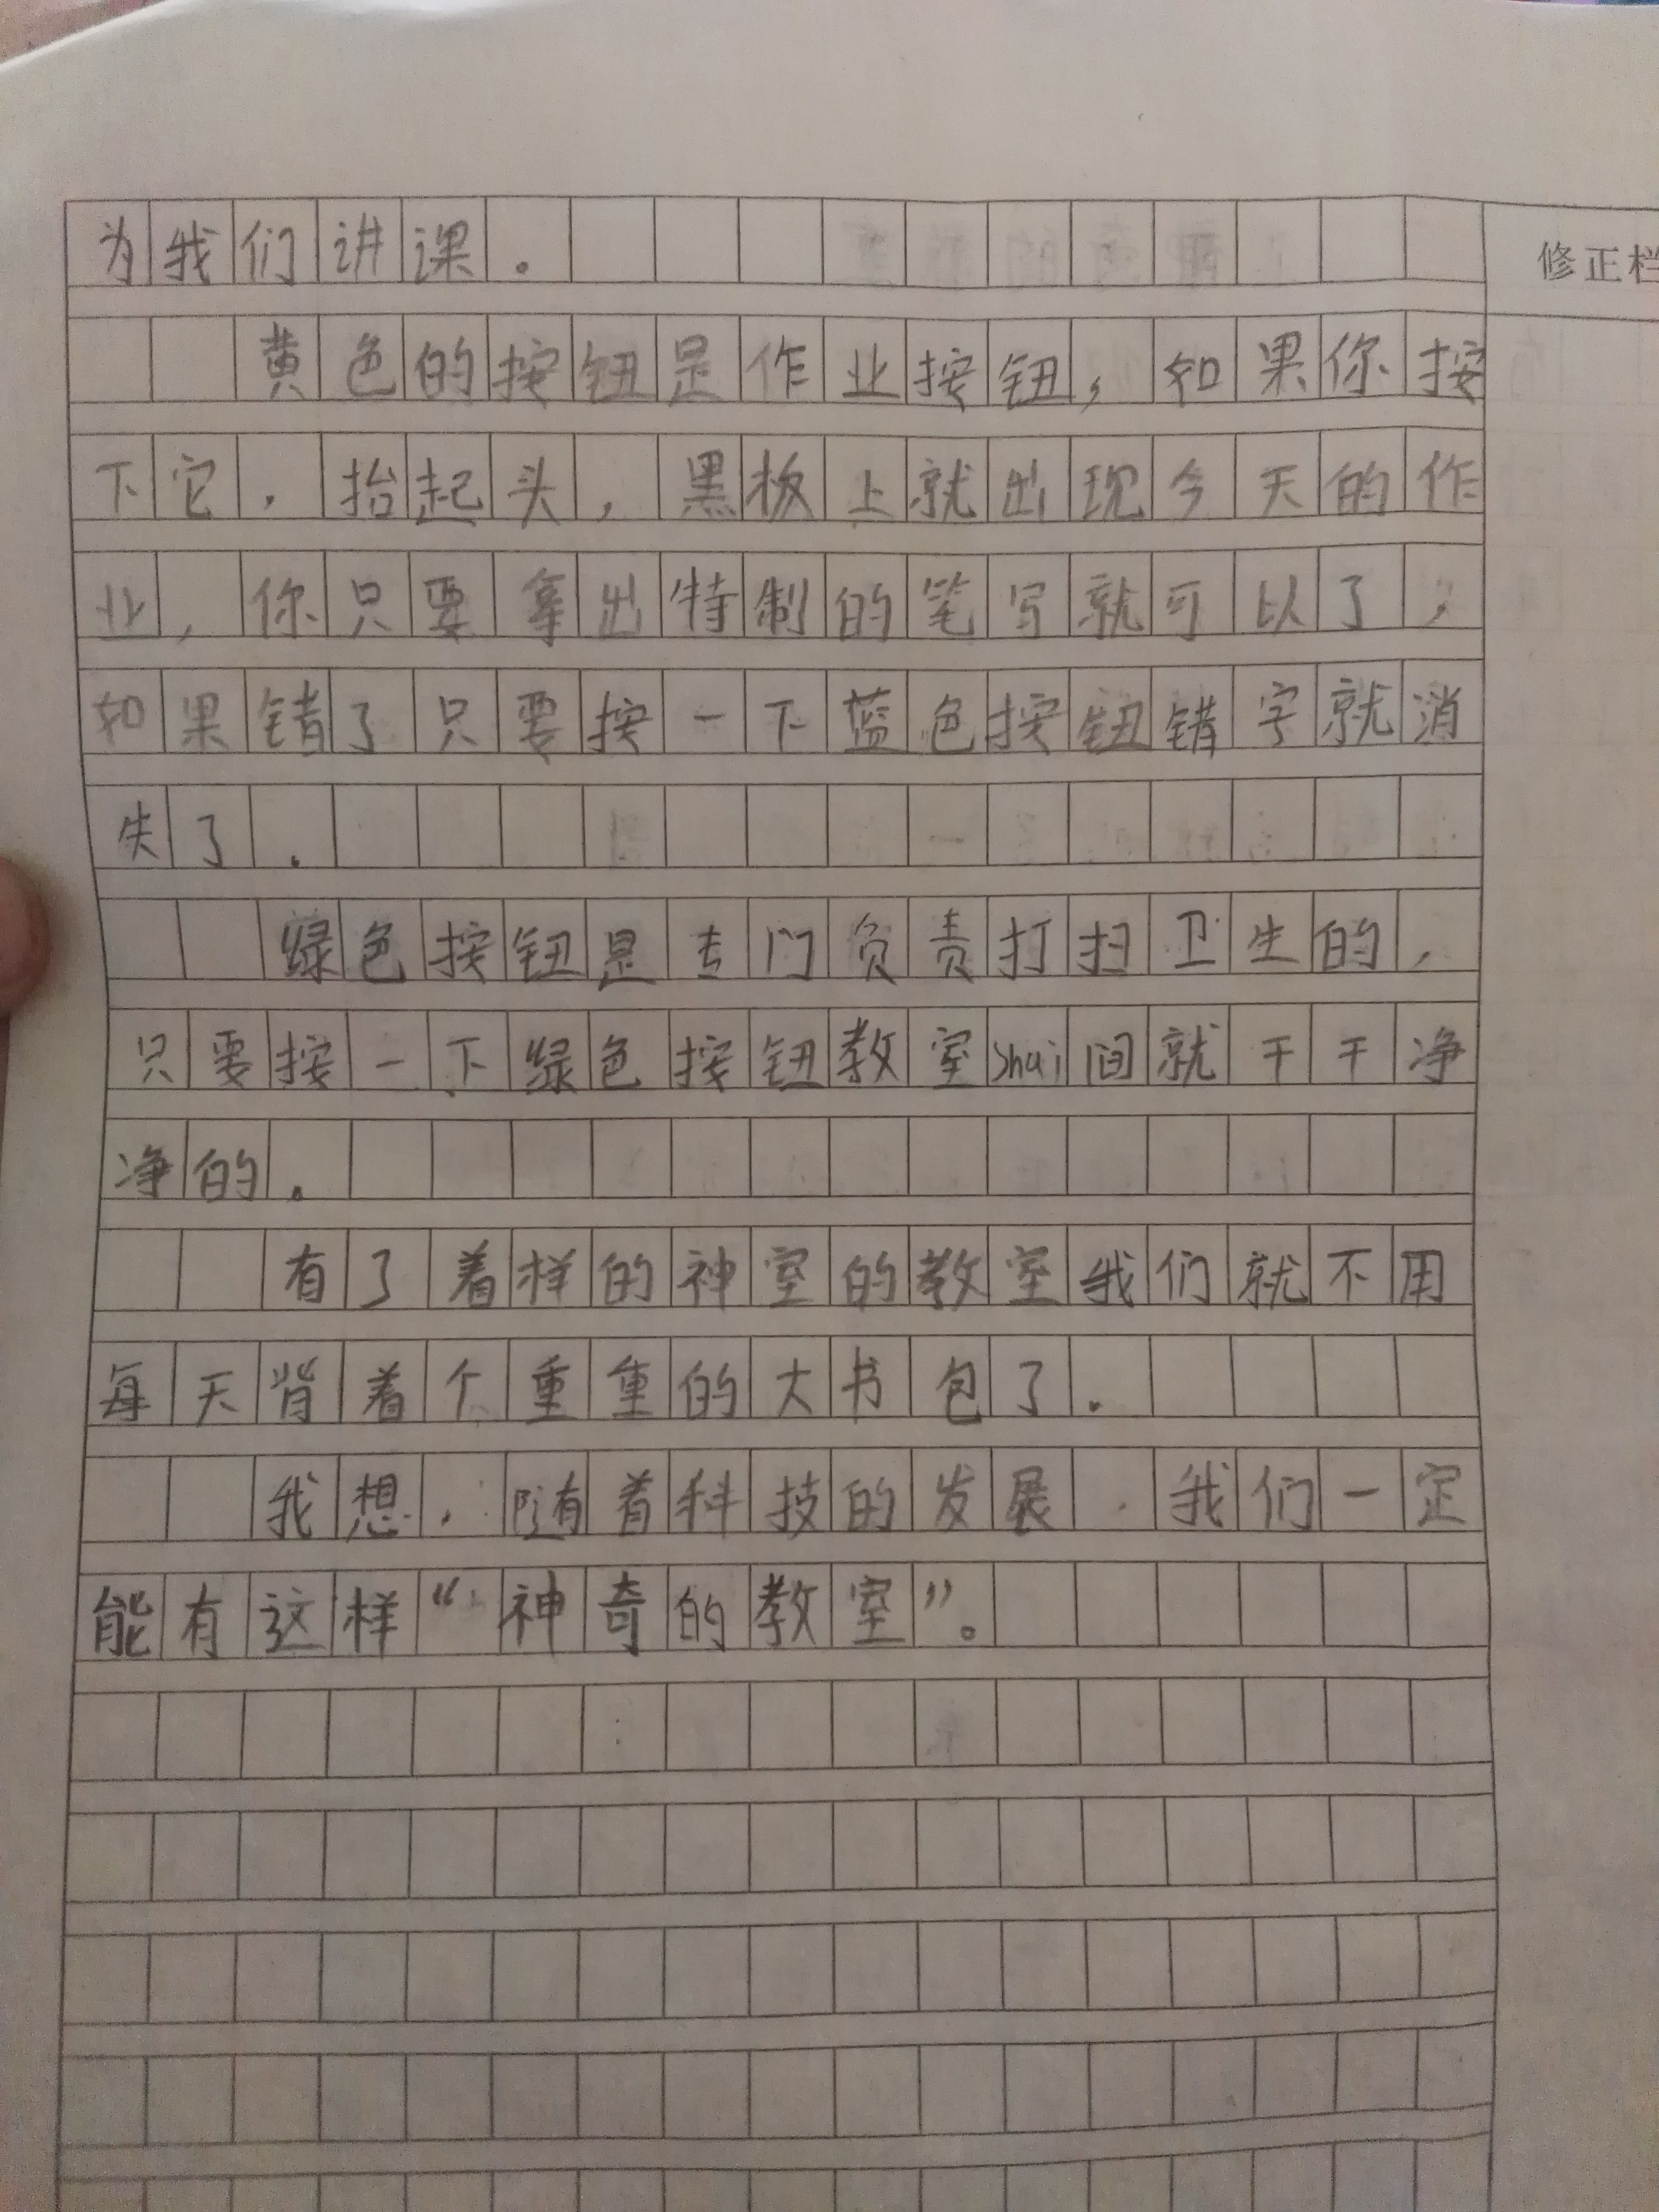 为我们讲课。
修正栏
黄色的按钮是作业按钮，如果你按
下它，抬起头，黑板上就出现今天的作
业，你只要拿出特制的笔写就可以了，
如果错了只要按一下蓝色按钮错字就消
失了。
绿色按钮是专门负责打扫卫生的，
只要按一下绿色按钮教室shai间就干干净
净的。
有了着样的神室的教室我们就不用
每天背着个重重的大书包了。
我想，随着科技的发展，我们一定
能有这样“神奇的教室”。